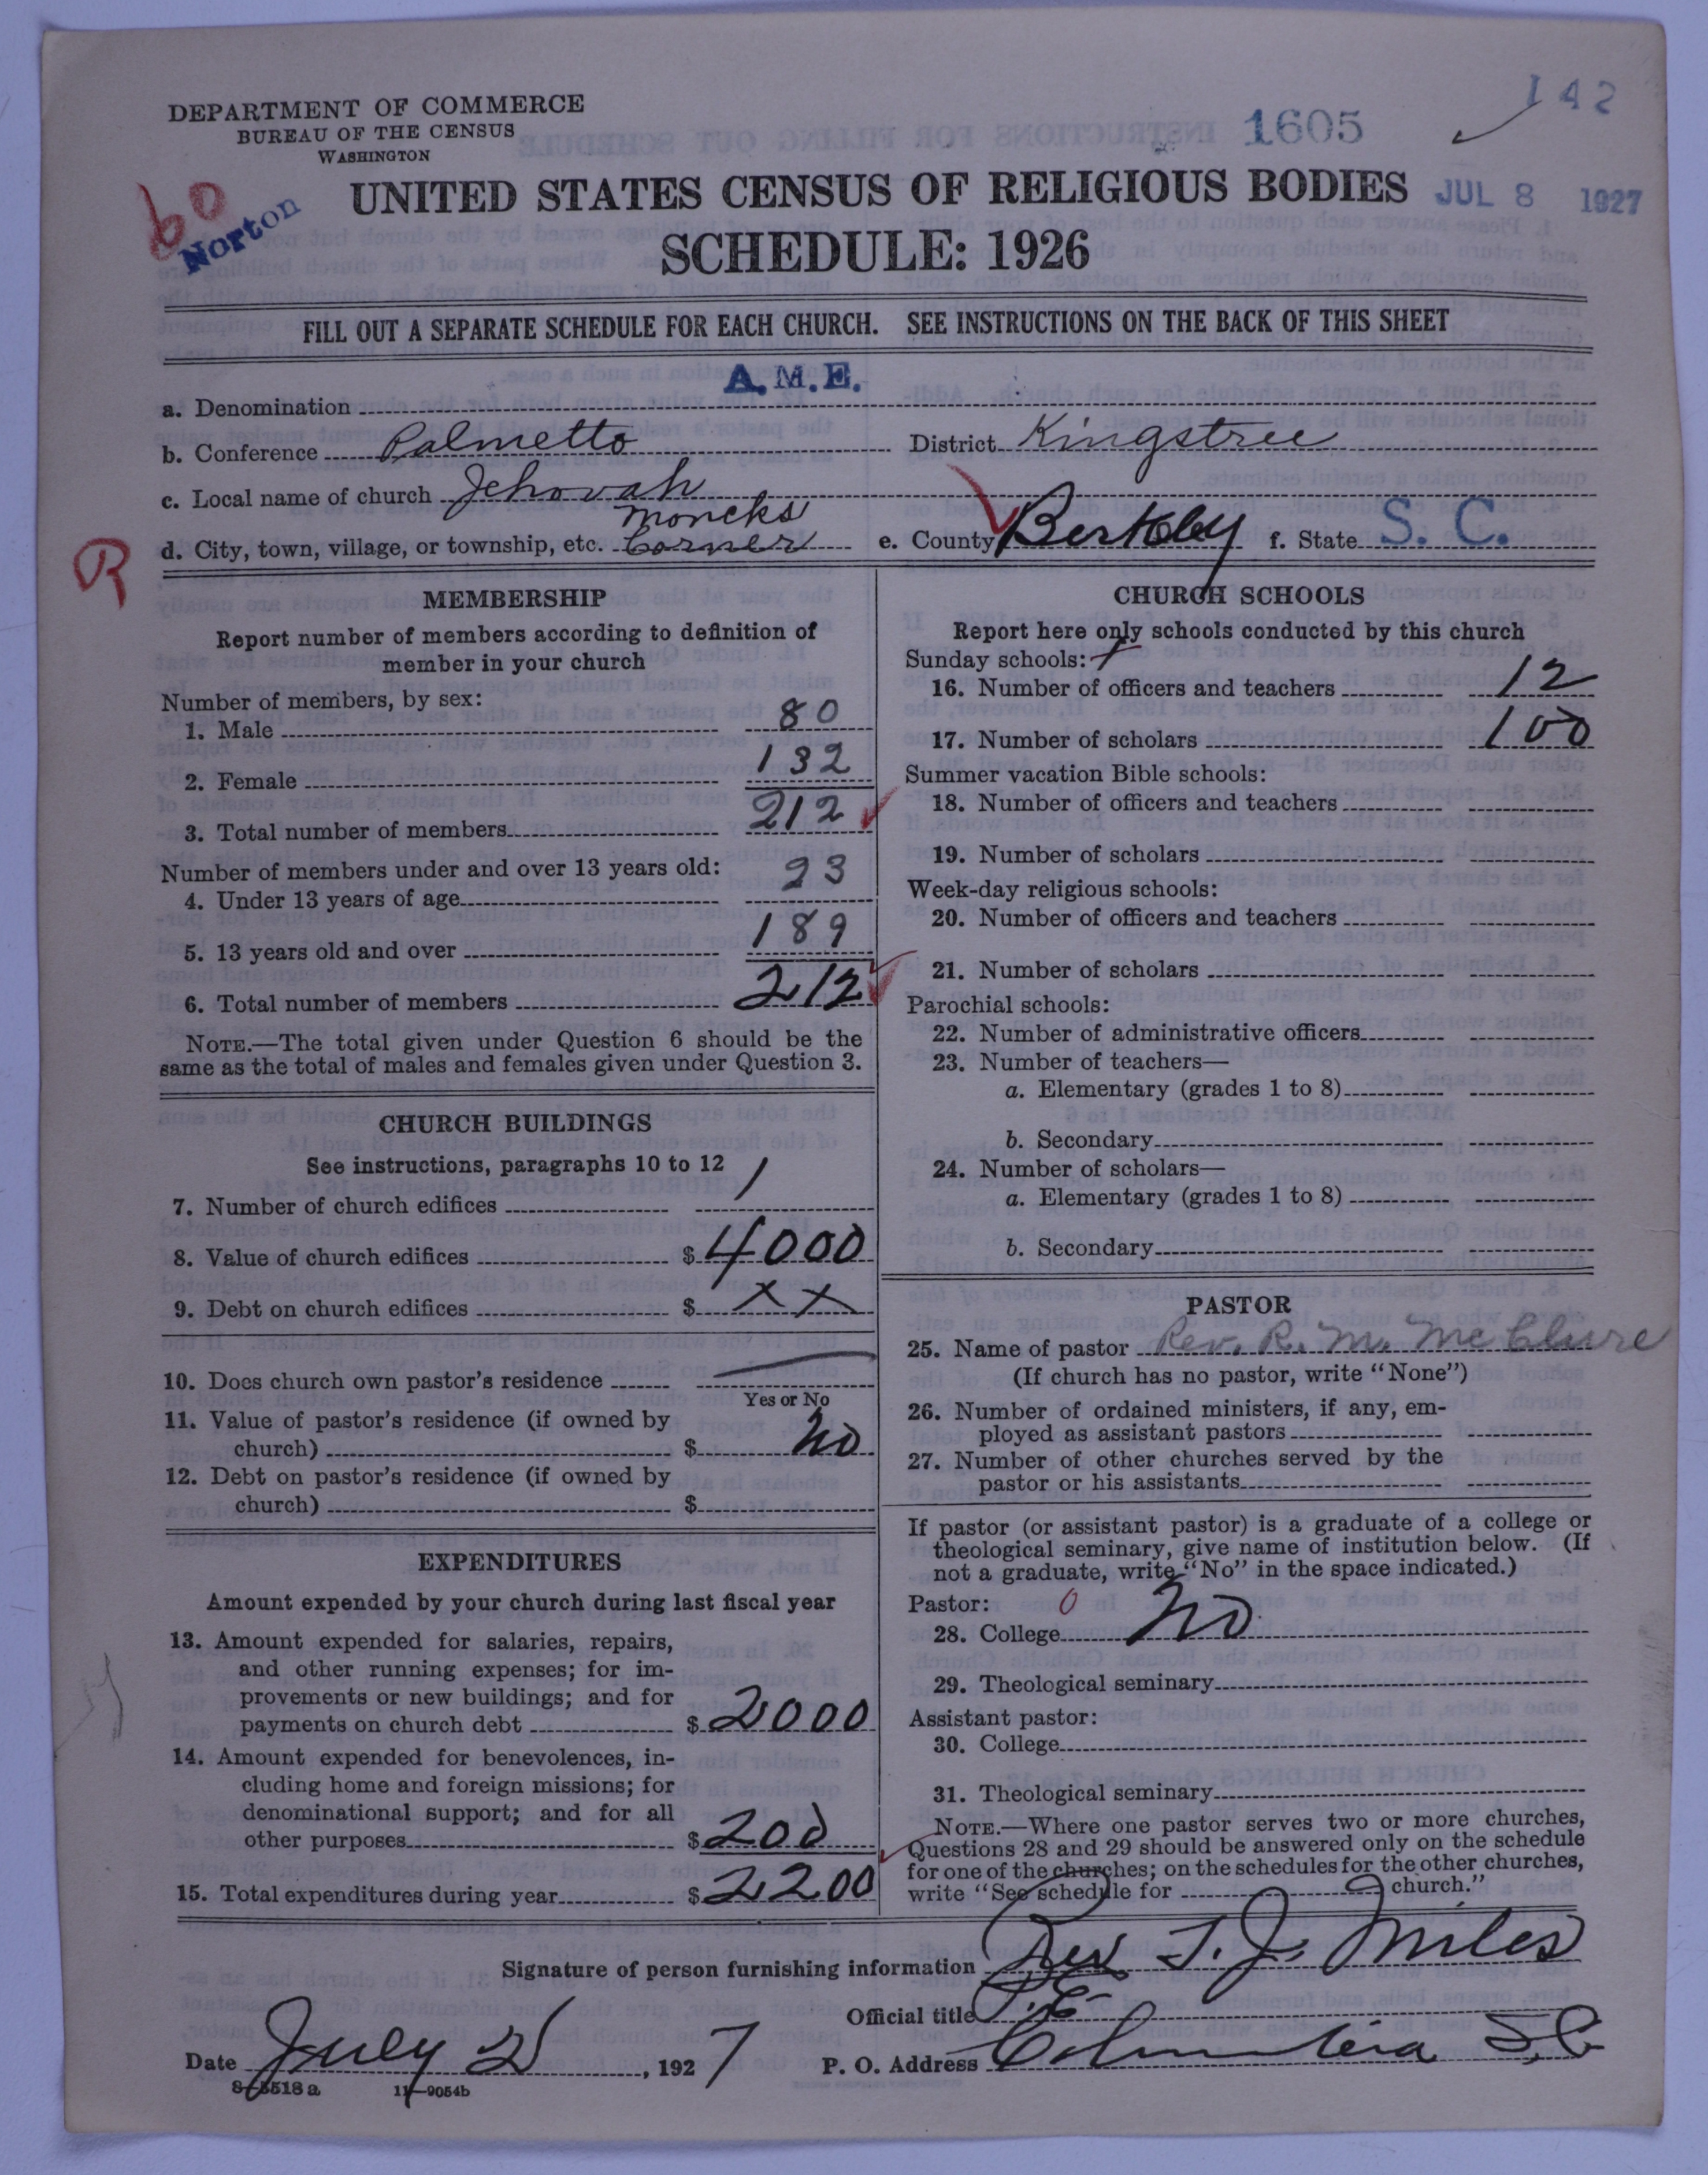 142
DEPARTMENT OF COMMERCE
BUREAU OF THE CENSUS
WASHINGTON
1605
60
Norton
UNITED STATES CENSUS OF RELIGIOUS BODIES
JUL 8 1927
SCHEDULE: 1926
FILL OUT A SEPARATE SCHEDULE FOR EACH CHURCH. SEE INSTRUCTIONS ON THE BACK OF THIS SHEET
a. Denomination A.M.E.
b. Conference Palmetto District Kingstree
c. Local name of church Jehovah
d. City, town, village, or township, etc. Moncks Corner e. County Berkley f. State S. C.
R
MEMBERSHIP
Report number of members according to definition of
member in your church
Number of members, by sex:
1. Male 80
2. Female 132
3. Total number of members 212
Number of members under and over 13 years old:
4. Under 13 years of age 23
5. 13 years old and over 189
6. Total number of members 212
NOTE.—The total given under Question 6 should be the
same as the total of males and females given under Question 3.
CHURCH BUILDINGS
See instructions, paragraphs 10 to 12
7. Number of church edifices 1
8. Value of church edifices $ 4000
9. Debt on church edifices $ X X
10. Does church own pastor's residence
Yes or No
11. Value of pastor's residence (if owned by
church) $ No
12. Debt on pastor's residence (if owned by
church) $
EXPENDITURES
Amount expended by your church during last fiscal year
13. Amount expended for salaries, repairs,
and other running expenses; for im-
provements or new buildings; and for
payments on church debt $ 2000
14. Amount expended for benevolences, in-
cluding home and foreign missions; for
denominational support; and for all
other purposes $ 200
15. Total expenditures during year $ 2200
CHURCH SCHOOLS
Report here only schools conducted by this church
Sunday schools: 1
16. Number of officers and teachers 12
17. Number of scholars 100
Summer vacation Bible schools:
18. Number of officers and teachers
19. Number of scholars
Week-day religious schools:
20. Number of officers and teachers
21. Number of scholars
Parochial schools:
22. Number of administrative officers
23. Number of teachers—
a. Elementary (grades 1 to 8)
b. Secondary
24. Number of scholars—
a. Elementary (grades 1 to 8)
b. Secondary
PASTOR
25. Name of pastor Rev. R. M. McClure
(If church has no pastor, write "None")
26. Number of ordained ministers, if any, em-
ployed as assistant pastors
27. Number of other churches served by the
pastor or his assistants
If pastor (or assistant pastor) is a graduate of a college or
theological seminary, give name of institution below. (If
not a graduate, write "No" in the space indicated.)
Pastor: 0
28. College No
29. Theological seminary
Assistant pastor:
30. College
31. Theological seminary
NOTE.—Where one pastor serves two or more churches,
Questions 28 and 29 should be answered only on the schedule
for one of the churches; on the schedules for the other churches,
write "See schedule for church."
Signature of person furnishing information Rev T. J. Miles
Official title P. E.
Date July 2, 1927 P. O. Address Columbia S. C.
8-5518 a 11-9054b